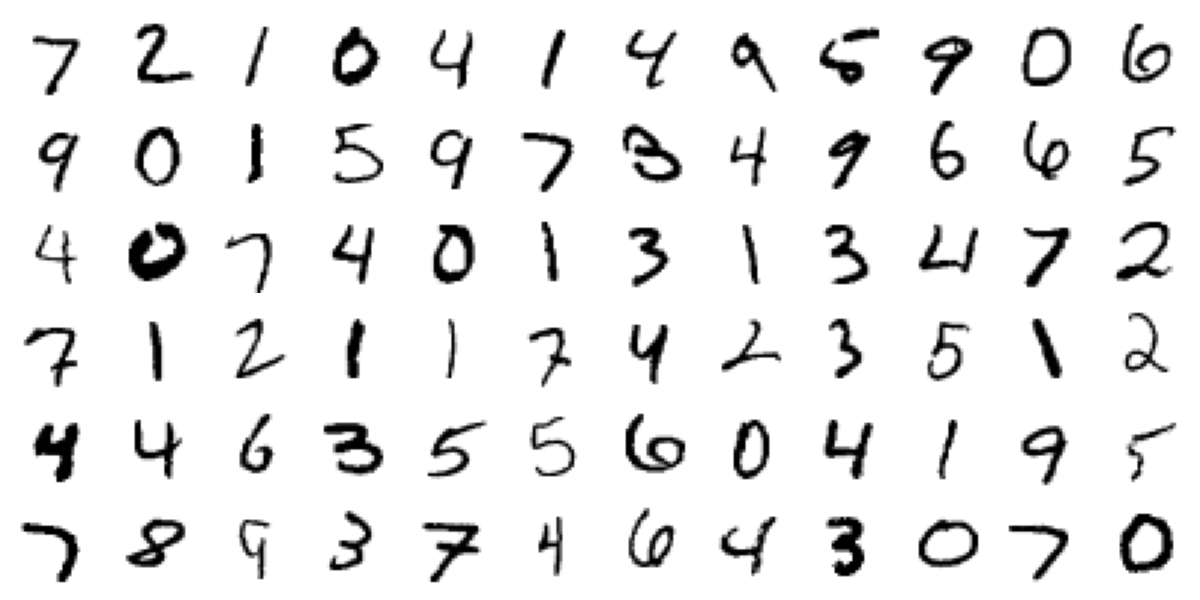 7 2 1 0 4 1 4 9 5 9 0 6
9 0 1 5 9 7 3 4 9 6 6 5
4 0 7 4 0 1 3 1 3 4 7 2
7 1 2 1 1 7 4 2 3 5 1 2
4 4 6 3 5 5 6 0 4 1 9 5
7 8 9 3 7 4 6 4 3 0 7 0